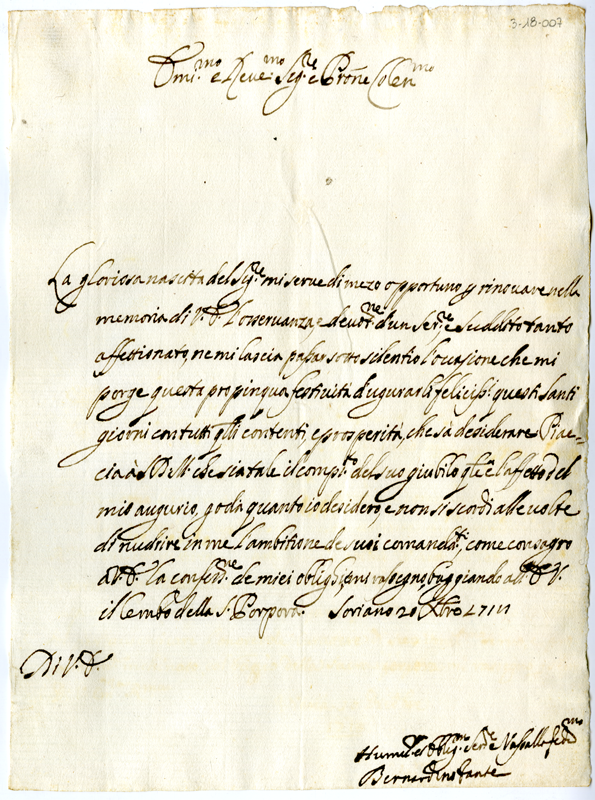 3-18-007
Emi.mo e Reve.mo Sig.re e Prõne Colen.mo
La gloriosa nascita del Sig.re mi serve di mezo opportuno p rinovare nella
memoria di V.E. l'osservanza, e devot.ne d'un Ser.e e suddito tanto
affettionato, ne mi lascia passar sotto silentio l'occasione che mi
porge questa propinqua festività d'augurarli feliciss.i questi Santi
giorni con tutti gli contenti, e prosperità, che sà desiderare Piac-
cia à S.D.M. che sia tale il comp.to del suo giubilo qli è l'affetto del
mio augurio, goda quanto io desidero, e non si scordi alle volte
di nudrire in me l'ambitione de suoi comandi, come consagro
a V.E. la de miei oblighi, bacciando all' E.V.
il lembo della S. Porpora. Soriano 20 Xbro 1711
Di V.E.
Humil.e Oblig.mo Ser.e e Vassallo fed.mo
Bernardino Fante